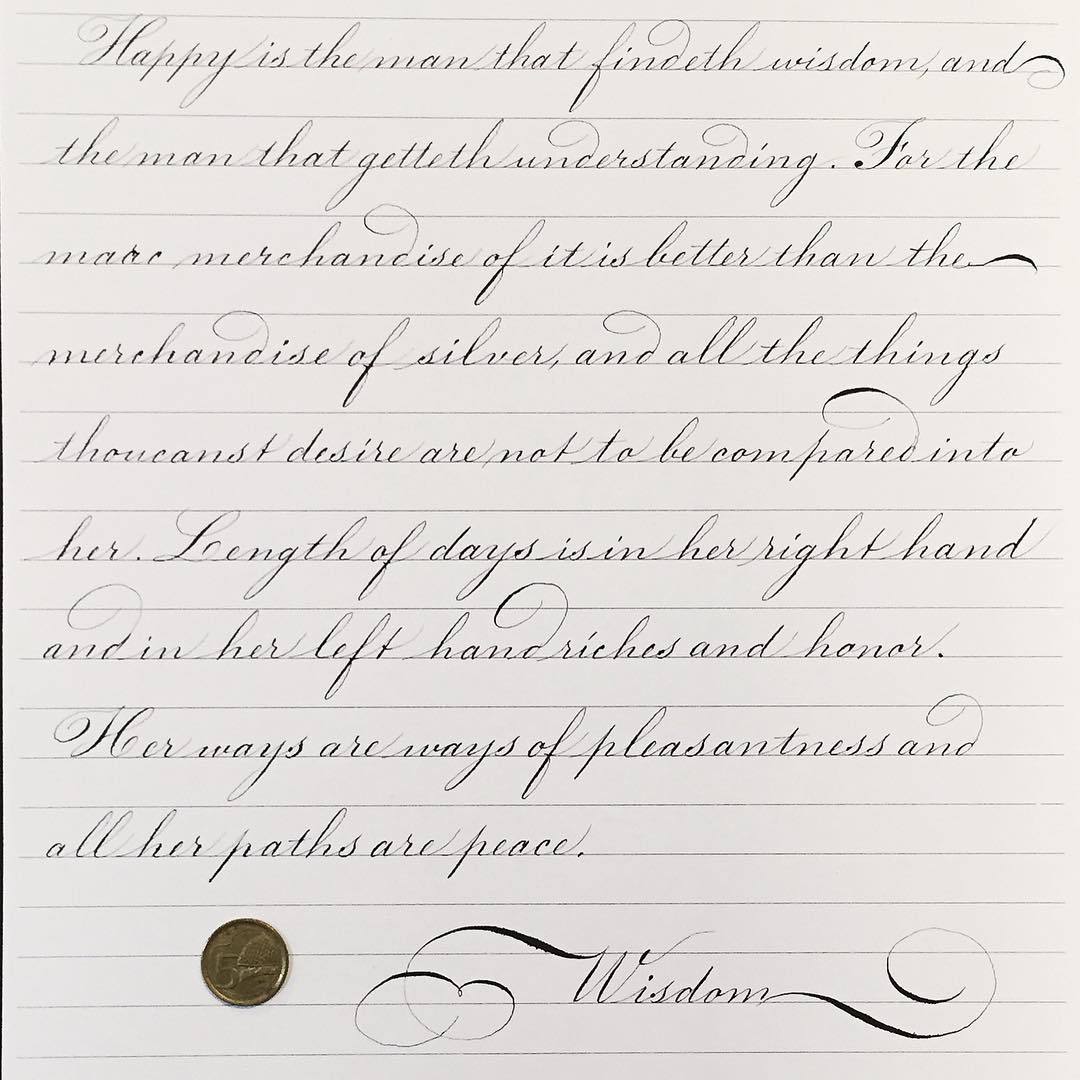 Happy is the man that findeth wisdom, and
the man that getteth understanding. For the
marc merchandise of it is better than the
merchandise of silver, and all the things
thou canst desire are not to be compared into
her. Length of days is in her right hand
and in her left hand riches and honor.
Her ways are ways of pleasantness and
all her paths are peace.
5
Wisdom